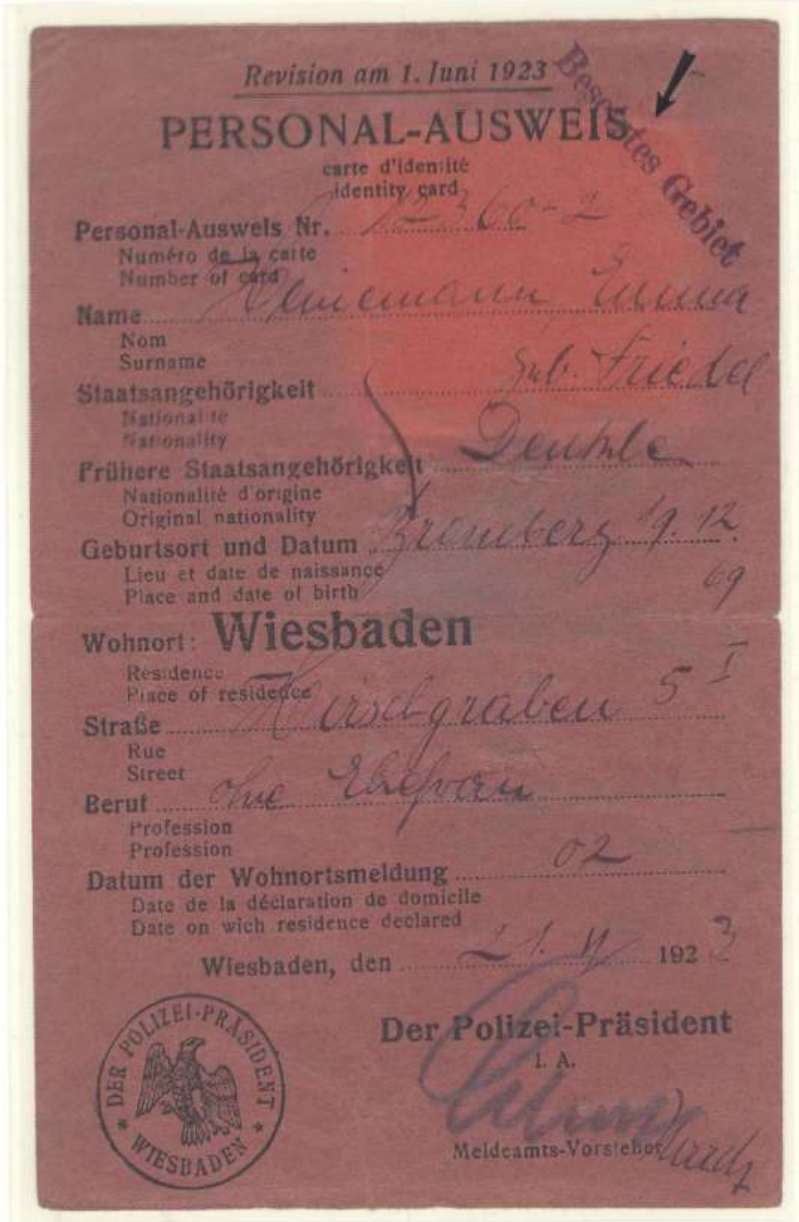 Revision am 1. Juni 1923
Besetztes Gebiet
PERSONAL-AUSWEIS
carte d'identité
identity card
Personal-Ausweis Nr. 12360-2
Numéro de la carte
Number of card
Name Emma
Nom
Surname
geb. Friedel
Staatsangehörigkeit
Nationalité
Nationality
Deutsche
Frühere Staatsangehörigkeit
Nationalité d'origine
Original nationality
Geburtsort und Datum Bromberg 19. 12.
Lieu et date de naissance
Place and date of birth
69
Wohnort: Wiesbaden
Résidence
Place of residence
Straße Hirschgraben 5 I
Rue
Street
Beruf ohne Ehefrau
Profession
Profession
Datum der Wohnortsmeldung 02
Date de la déclaration de domicile
Date on wich residence declared
Wiesbaden, den 21. 1923
Der Polizei-Präsident
I. A.
Meldeamts-Vorsteher
DER POLIZEI-PRÄSIDENT
* WIESBADEN *